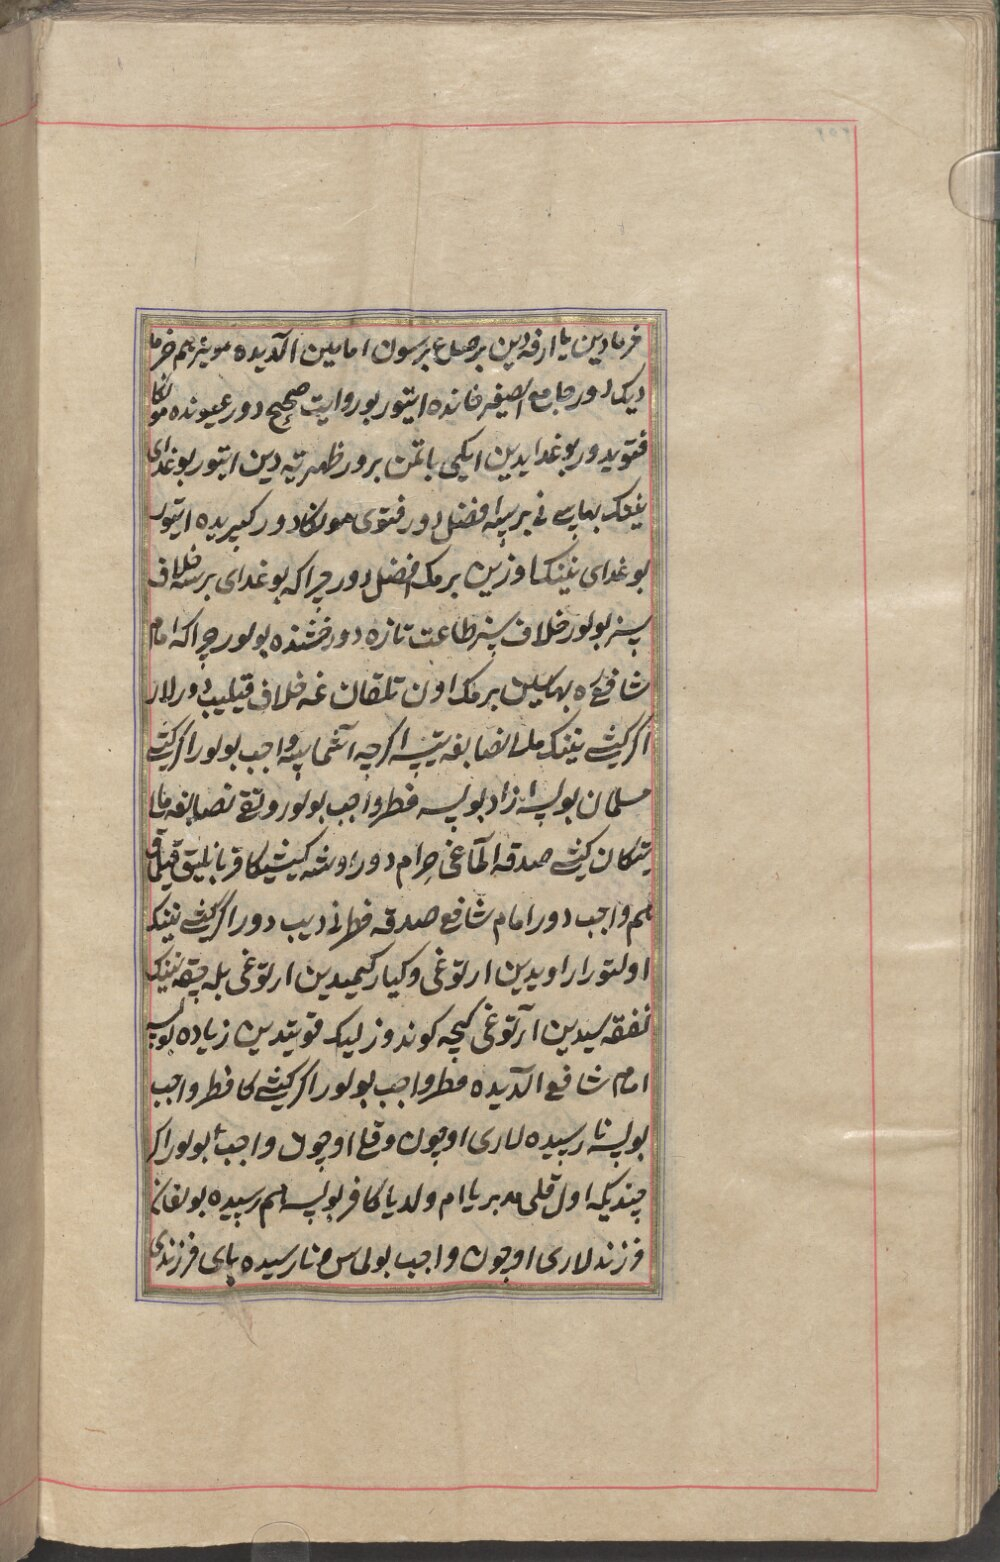 خرمادین یا ارفه دین بر صاع برسون امامین الدیده مویز هم خرما
دیک دور جامع الصغیر خانده ایتور بو روایت صحیح دور عیونده مونکا
فتوی دور بوغدایدین ایکی باتمن برور ظهریه دین ایتور بوغدای
نینک بهاسی نی برسه افضل دور فتوی مونکا دور کبیریده ایتور
بوغدای نینک اوزین برمک افضل دور چرا که بوغدای برسه خلاف
سیز بولور خلاف سیز طاعت تازه دور خشنده بولور چرا که امام
شافعی ره بهاسین برمک اون تلقان غه خلاف قیلیب دورلار
اکر کیشی نینک مال نصابغه یتسه اکرچه آشماسه واجب بولور اکر کیشی
مسلمان بولسه ازاد بولسه فطر واجب بولور وقتی نصابغه مال
یتکان کیشی صدقه الماغی حرام دور اوشه کیشیکا قربانلیق قیلماق
هم واجب دور امام شافع صدقه فطرنی دیب دور اکر کیشی نینک
اولتورار اویدین ارتوغی و کیار کیمیدین ارتوغی بله چقه نینک
نفقه سیدین آرتوغی کیچه کوندوزلیک قویتدین زیاده بولسه
امام شافع الدیده فطر واجب بولور اکر کیشی کا فطر واجب
بولسه نارسیده لاری اوچون و قلی اوچون واجب بولور اکر
چندیکه اول قلی مدبر یا ام ولد یا کافر بولسه هم رسیده بولغان
فرزندلاری اوچون واجب بولماس نارسیده بای فرزندی